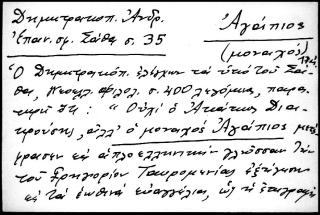 Δημητρακοπ. Ἀνδρ.
Ἀγάπιος
Ἐπαν. σμ. Σάθα σ. 35
(μοναχός)
"Ὁ Δημητρακόπ. ἐλέγχων τὰ ὑπὸ τοῦ Σά-
θα, Νεοελ. Φιλολ. σ. 400 λεγόμενα, παρα-
τηρεῖ ὅτι: "Οὐχὶ ὁ
κρούσης, ἀλλ' ὁ μοναχός Ἀγάπιος μετέ-
φρασεν εἰς ἁπλοελληνικὴν γλῶσσαν
τοῦ Γρηγορίου Ταυρομενίας ἐξήγησιν
εἰς τὰ ἑωθινὰ εὐαγγέλια, ὡς ἡ ἐπιγραφὴ